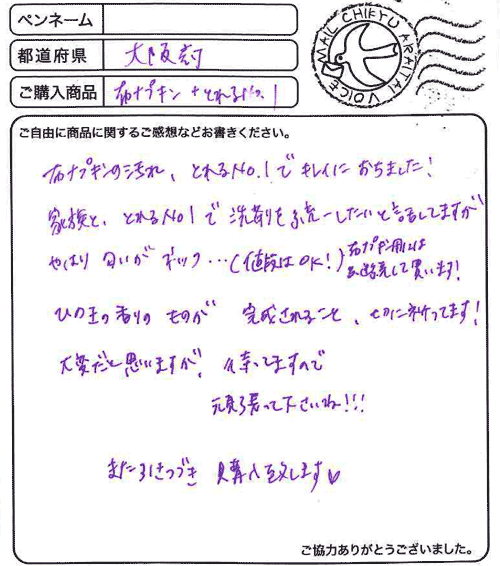 ペンネーム
都道府県 大阪府
ご購入商品 布ナプキン + とれるNo.1
MAIL CHIKYU ARAITAI VOICE
ご自由に商品に関するご感想などお書きください。
布ナプキンの汚れ、とれるNo.1でキレイにおちました!
家族と、とれるNo1で洗剤を統一したいと話してますが
やはり匂いがネック…(値段はOK!)布ナプキン用には
継続して買います!
ひのきの香りのものが 完成されること、切に祈ってます!
大変だと思いますが、待ってますので
頑張って下さいね!!!
またひきつづき 購入致します♡
ご協力ありがとうございました。